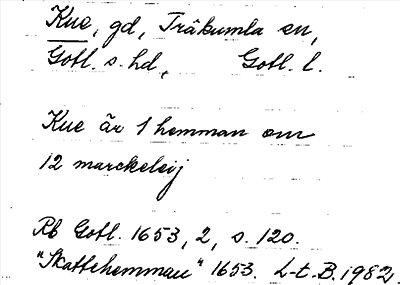 Kue, gd, Träkumla sn,
Gotl. s. hd, Gotl. l.
Kue är 1 hemman om
12 marckeleij
Rb Gotl. 1653, 2, s. 120.
"Skattehemman" 1653. L-t. B. 1982.